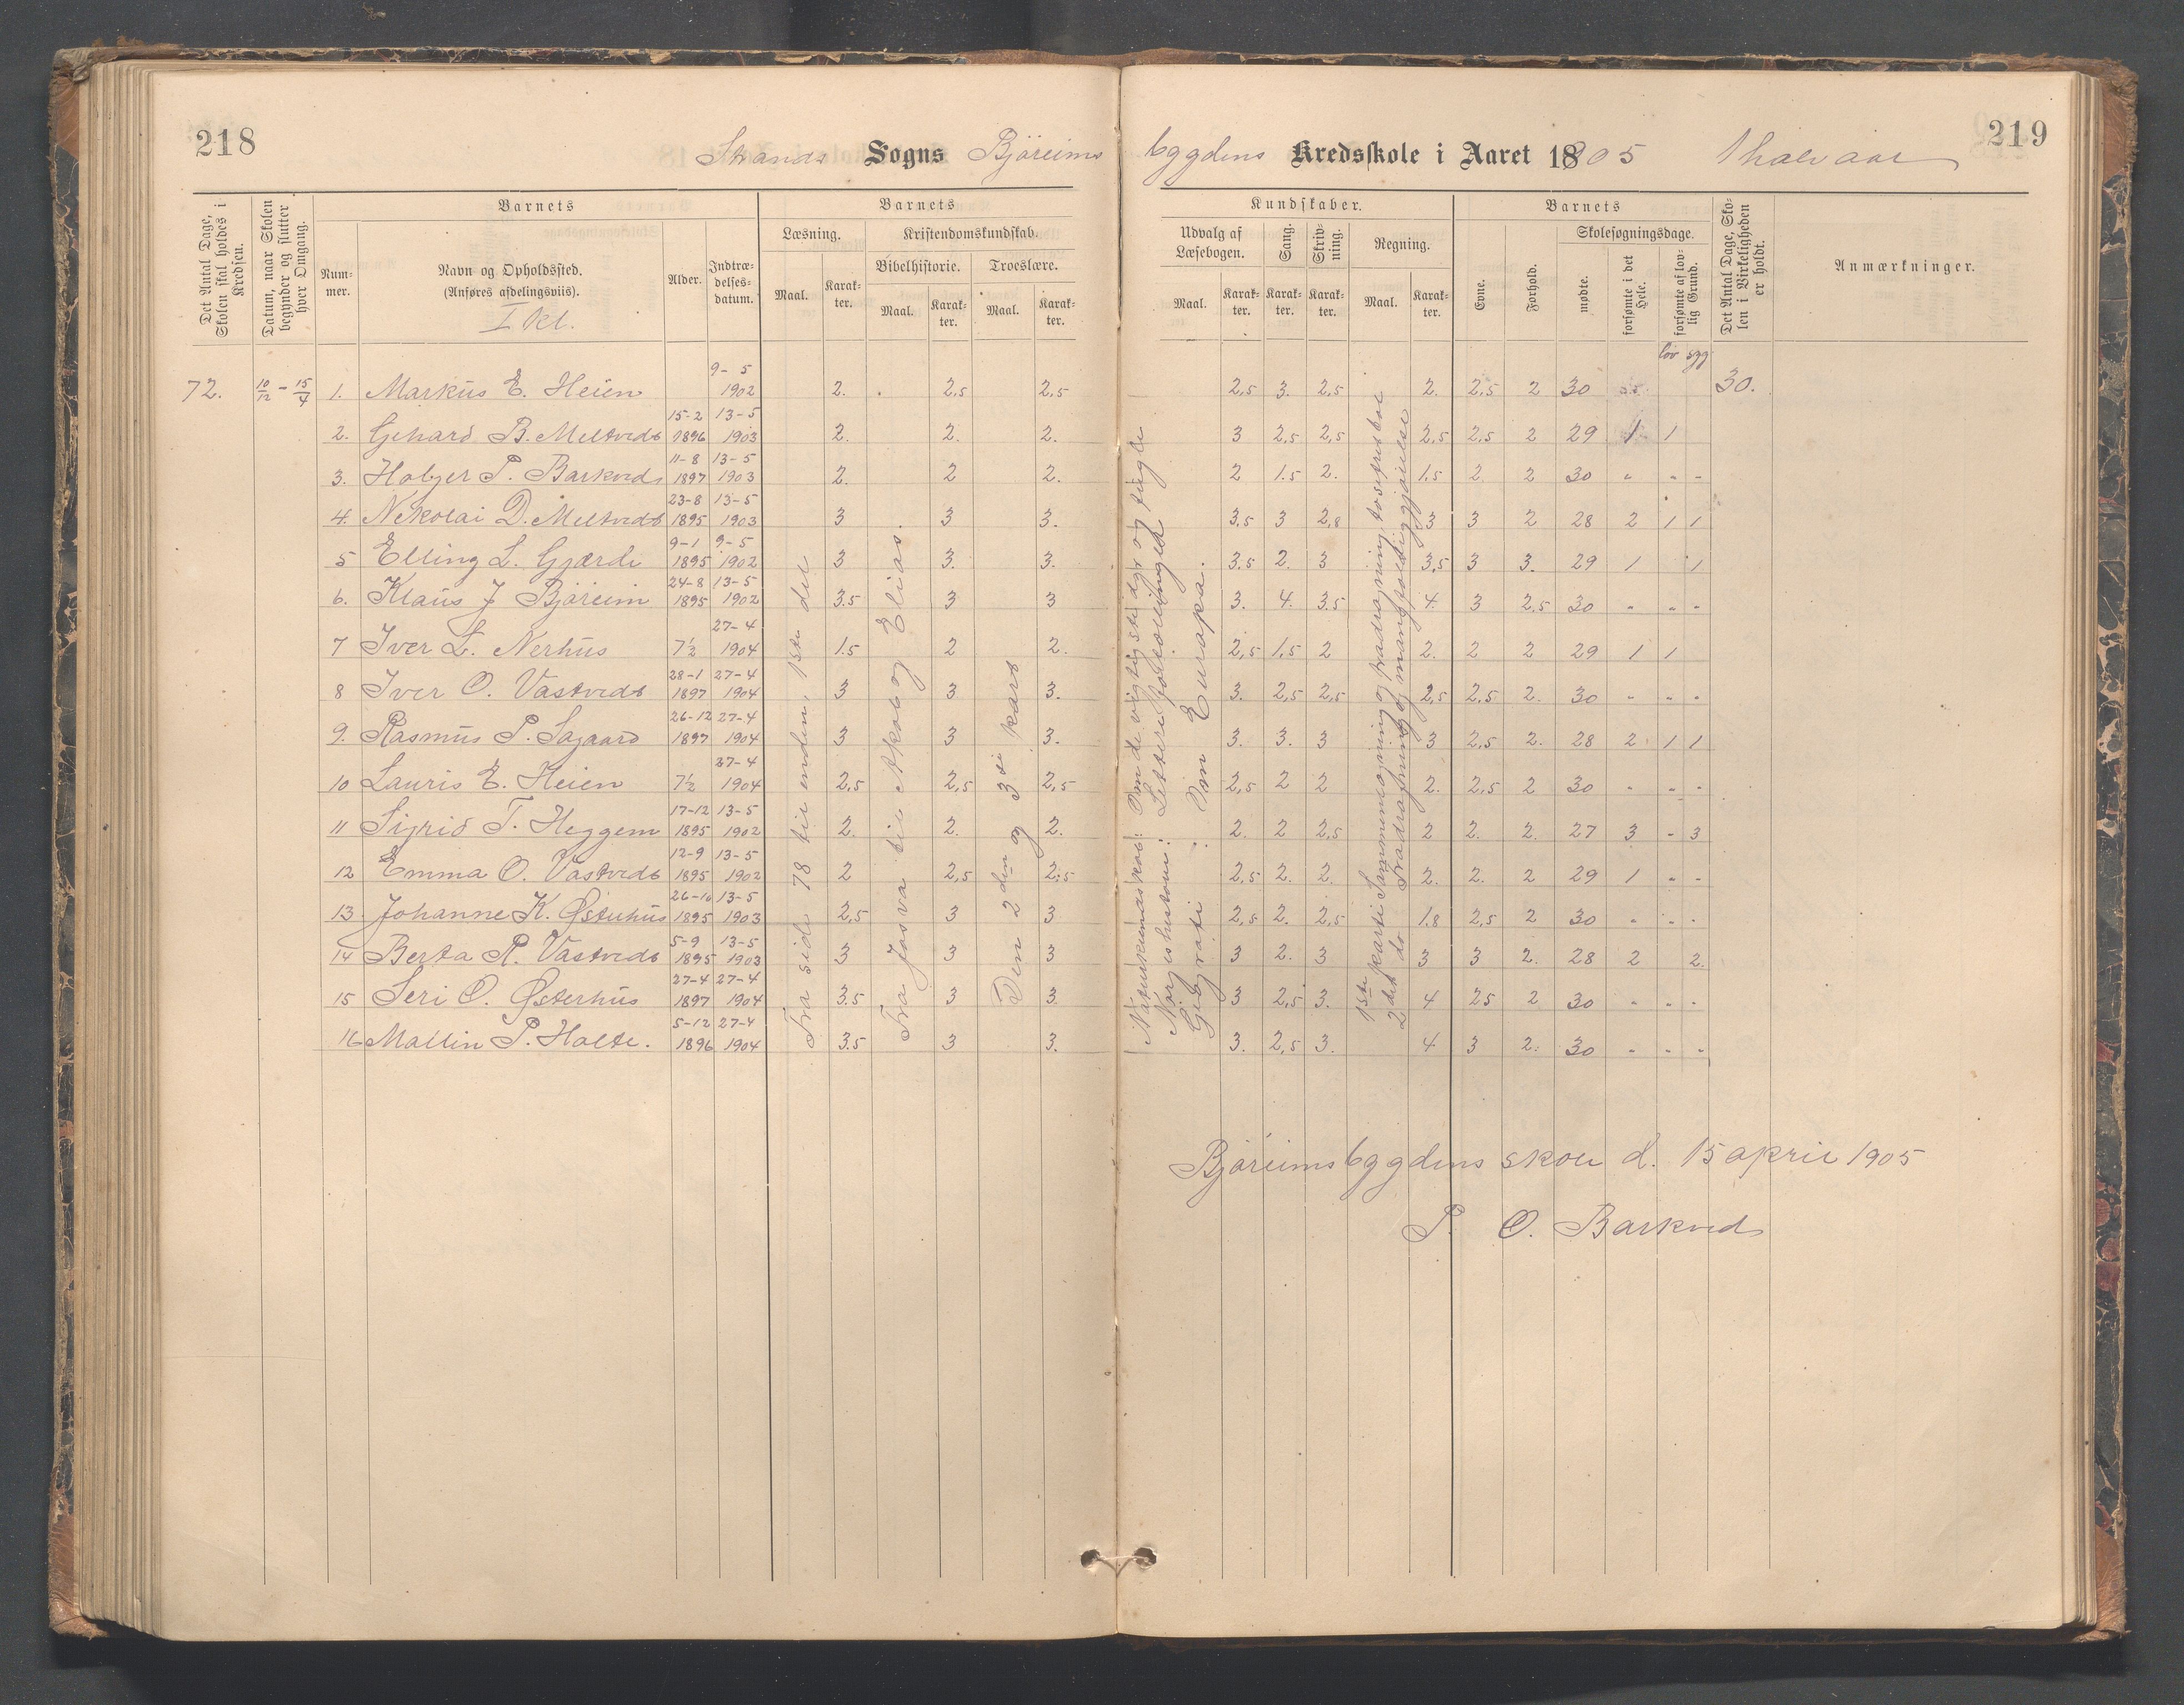 218
219
Strands Sogns Björeims bygdens Kredsskole i Aaret 1905 1 halvaar
Det Antal Dage, Skolen skal holdes i Kredsen.
Datum, naar Skolen begynder og slutter hver Omgang.
Barnets
Nummer.
Navn og Opholdssted.
(Anføres afdelingsviis).
I kl.
Alder.
Indtrædelsesdatum.
Barnets
Læsning.
Maal. Karakter.
Kristendomskundskab.
Bibelhistorie. Troeslære.
Maal. Karakter. Maal. Karakter.
Kundskaber.
Udvalg af Læsebogen.
Maal. Karakter.
Sang. Karakter.
Skrivning. Karakter.
Regning.
Maal. Karakter.
Barnets
Evne. Forhold.
Skolesøgningsdage.
mødte. forsømte i det Hele. forsømte af lovlig Grund.
lov syg
Det Antal Dage, Skolen i Virkeligheden er holdt.
Anmærkninger.
72. 10/12 - 15/4 1. Markus E. Heien 9-5 1902 2. 2,5 2,5 2,5 3. 2,5 2. 2,5 2 30 30.
2. Gehard B. Meltvedt 15-2 1896 13-5 1903 2. 2. 2. 3 2,5 2,5 2,5 2,5 2 29 1 1
3. Holger P. Barkved 11-8 1897 13-5 1903 2. 2 2. 2 1.5 2. 1,5 2. 2 30 " " -
4. Nekolai D. Meltvedt 23-8 1895 13-5 1903 3 3 3. 3,5 3 2,8 3 3 2 28 2 1 1
5 Elling L. Gjærde 9-1 1895 9-5 1902 3 3. 3. 3.5 2. 3 3,5 3 3. 29 1 1
6. Klaus J Björeim 24-8 1895 13-5 1902 3.5 3 3 3. 4. 3.5 4. 3 2,5 30 " " -
7 Iver L. Nerhus 7½ 27-4 1904 1.5 2 2. 2,5 1,5 2 2. 2 2 29 1 1
8 Iver O. Vastvedt 28-1 1897 27-4 1904 3 3 3. 3. 2,5 2,5 2,5 2,5 2. 30 " " "
9. Rasmus P. Sagaard 26-12 1897 27-4 1904 3 3 3. 3. 3. 3 3 2,5 2. 28 2 1 1
10 Lauris E. Heien 7½ 27-4 1904 2,5 2,5 2,5 2,5 2 2 2. 2,5 2 30 " " -
11 Sigrid T. Heggem 17-12 1895 13-5 1902 2. 2. 2. 2. 2 2,5 2 2. 2. 27 3 - 3
12 Emma O. Vastvedt 12-9 1895 13-5 1902 2 2,5 2,5 2,5 2. 2. 2. 2. 2 29 1 - -
13. Johanne K. Østerhus 26-10 1895 13-5 1903 2,5 3 3 2,5 2. 2,5 1.8 2,5 2 30 " " -
14 Berta R. Vastvedt 5-9 1895 13-5 1903 3 3 3 3 2. 3 3 3 2. 28 2 2.
15 Seri O. Østerhus 27-4 1897 27-4 1904 3.5 3 3. 3 2,5 3. 4 25 2 30 " - -
16 Mallin P. Holte. 5-12 1896 27-4 1904 3.5 3 3. 3. 2,5 3. 4 3 2. 30 " - -
Fra side 78 til enden, 1ste del
Fra Josva til Akab og Elias.
Den 2den og 3die part
Naturkundskab: Om de vigtigste dyr og fugle
Norges historie: Lettere fortellinger
Geografi: Om Europa.
1ste parti Sammenlægning og fradragning
2det do
Björeimsbygdens skole d. 15 april 1905
P. O. Barkved